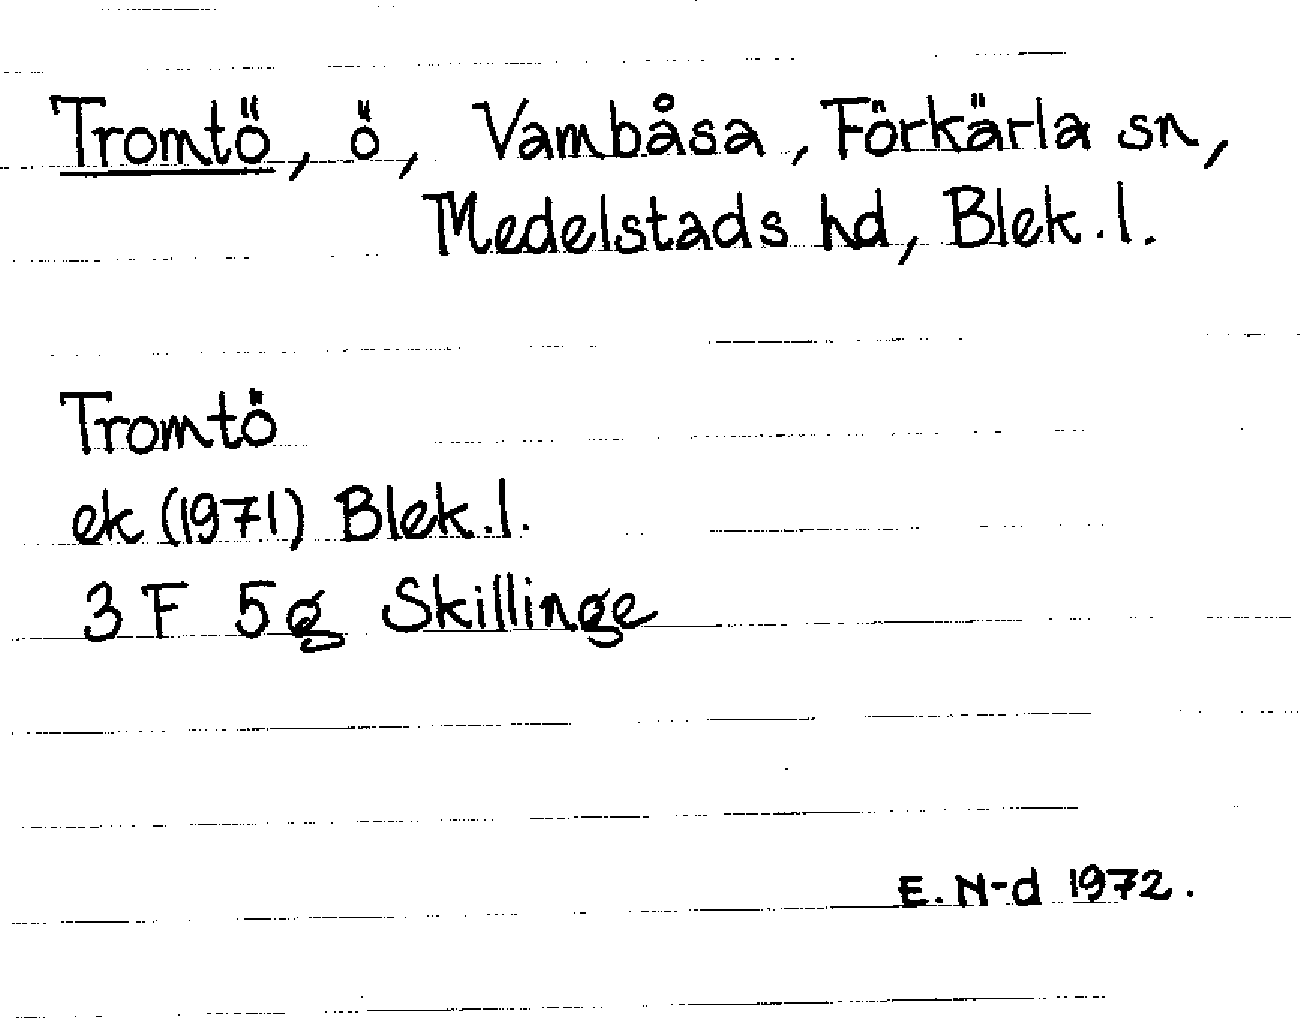 Tromtö, ö, Vambåsa, Förkärla sn,
Medelstads hd, Blek.l.
Tromtö
ek (1971) Blek.l.
3 F 5g Skillinge
E. N-d 1972.